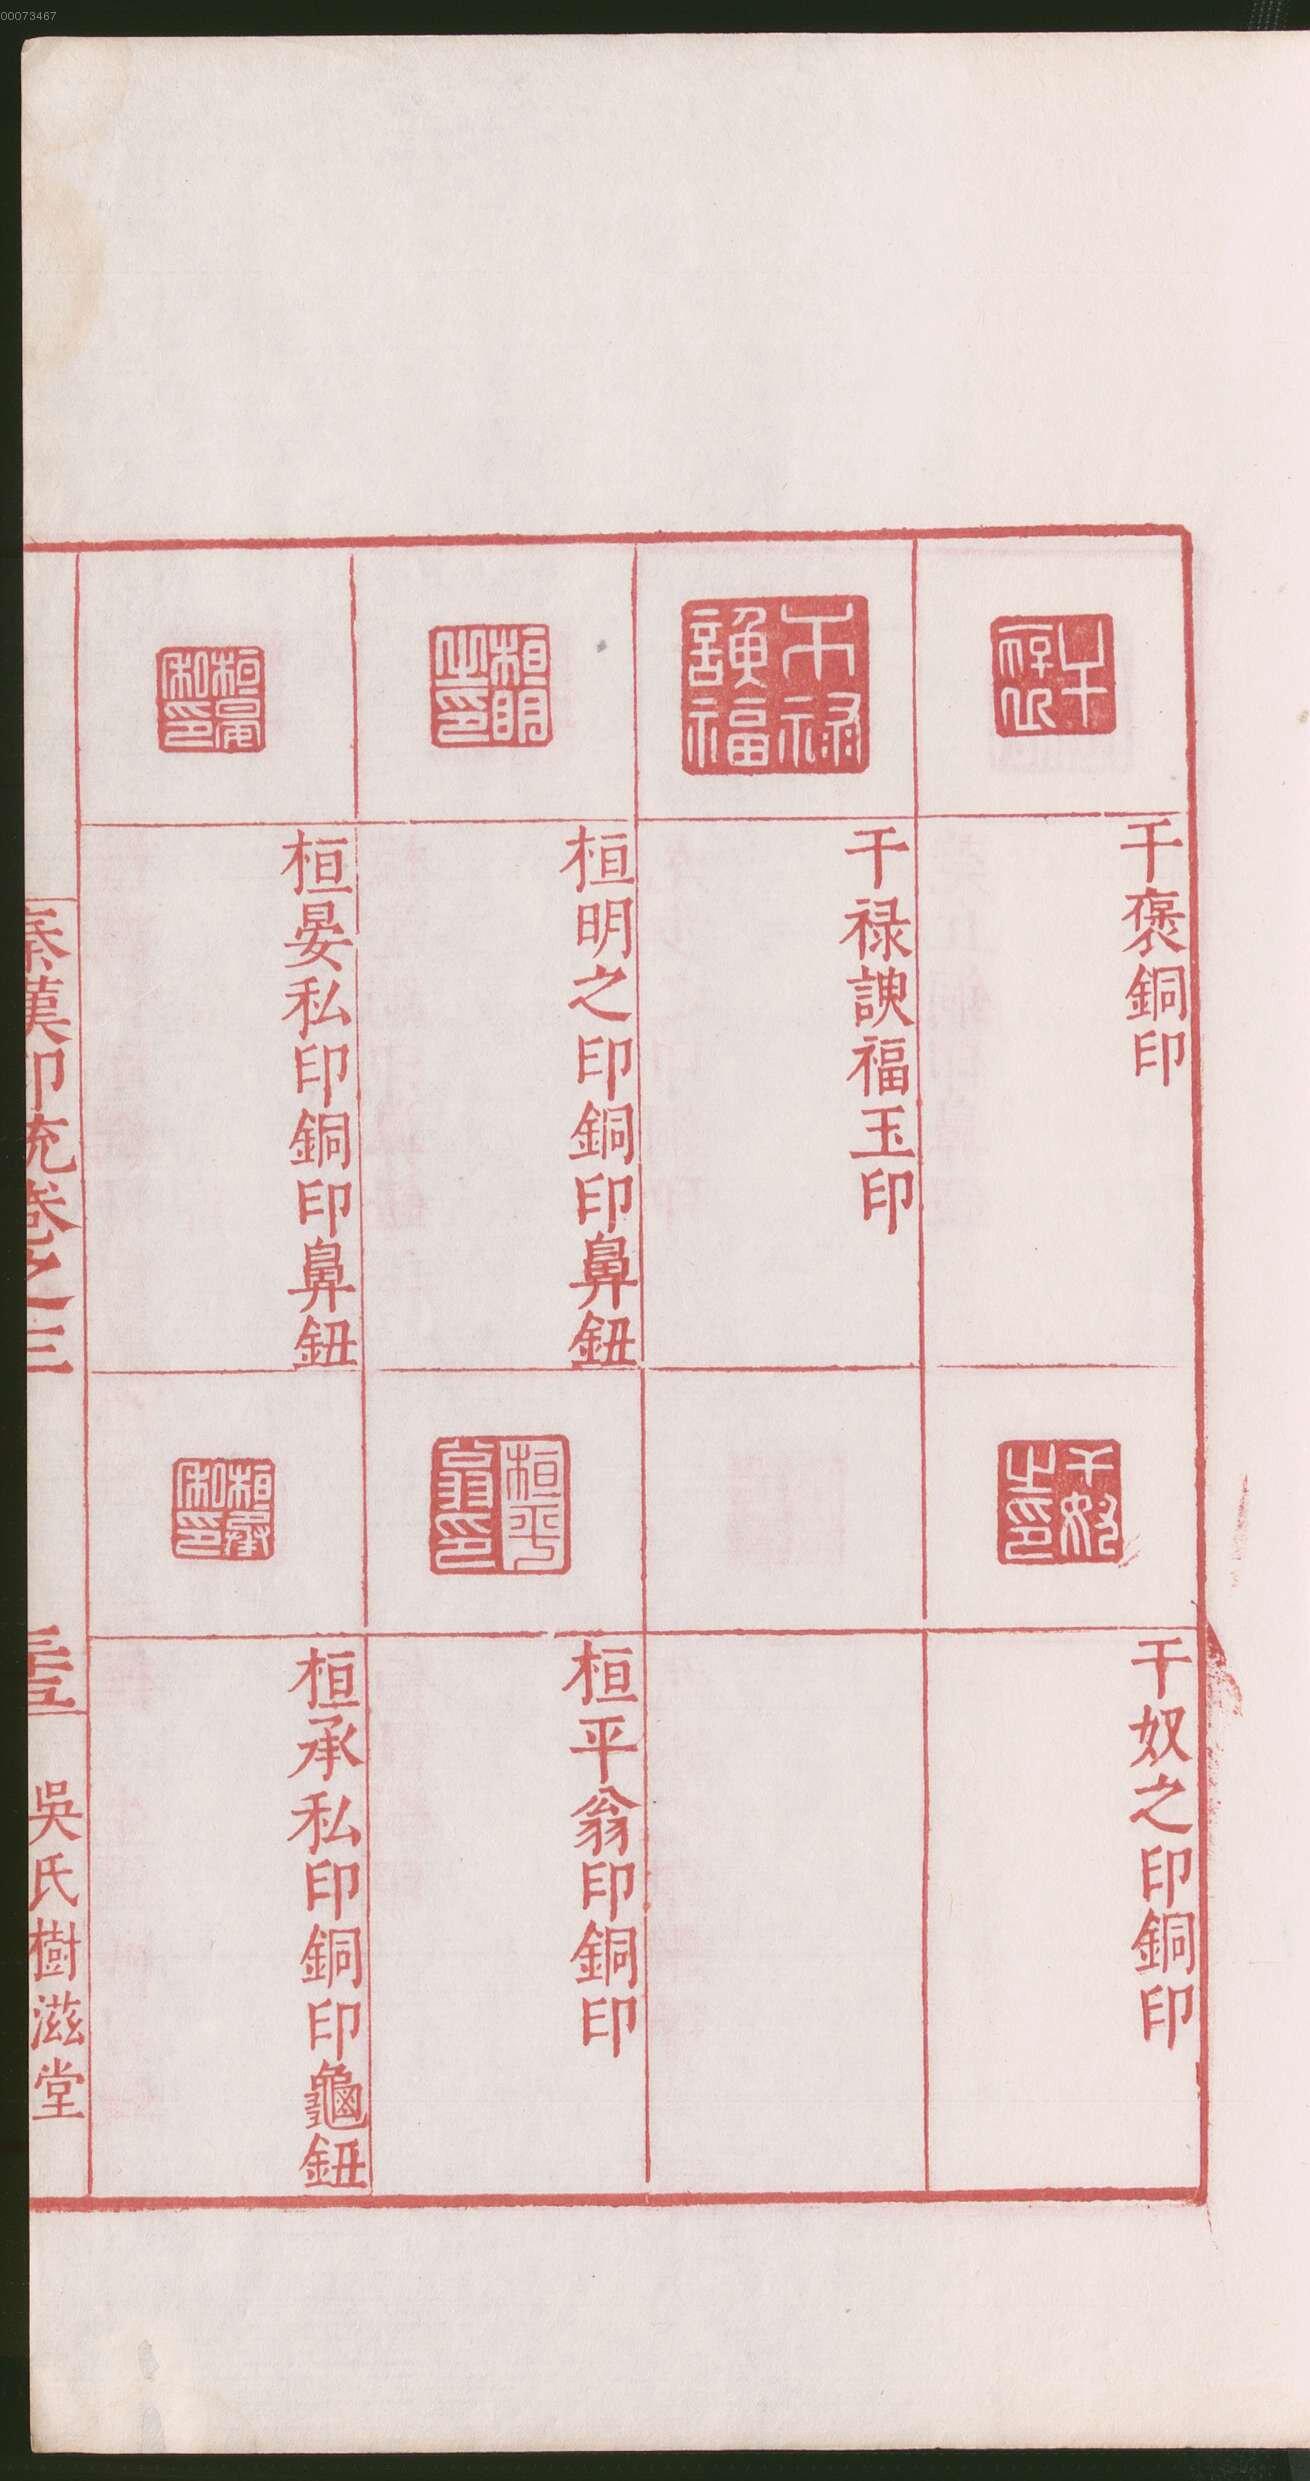 00073467
干褒銅印
干奴之印銅印
干禄諛福玉印
桓明之印銅印鼻鈕
桓平翁印銅印
桓晏私印銅印鼻鈕
桓承私印銅印龜鈕
秦漢印統卷之三
吳氏樹滋堂